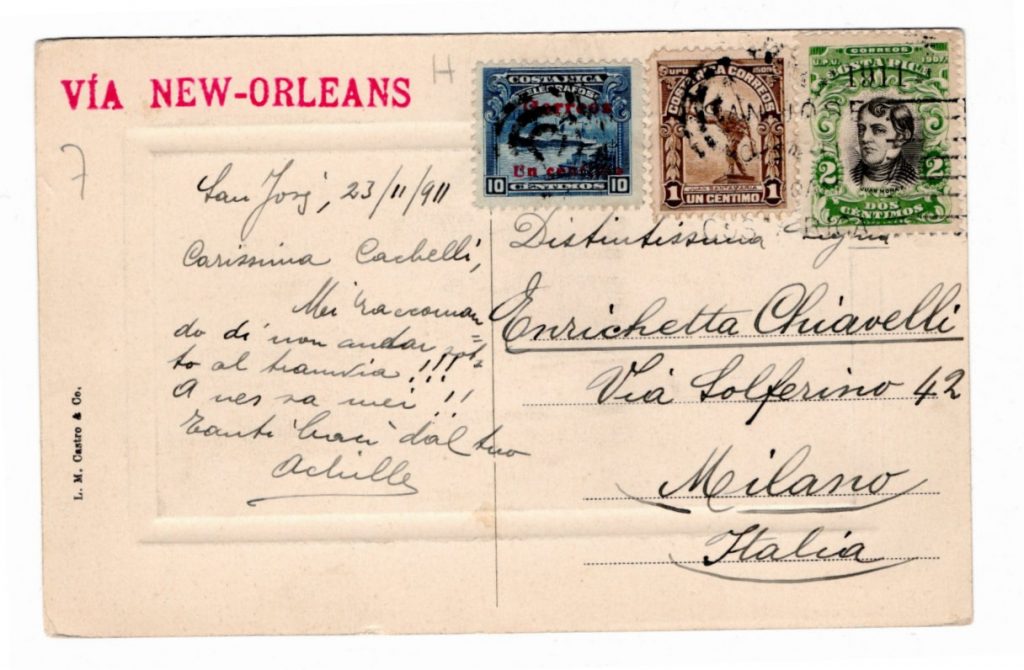 VÍA NEW-ORLEANS
H
7
COSTA RICA
TELEGRAFOS
Correos
Un centimo
10 CENTIMOS 10
UPU
COSTA RICA CORREOS
JUAN SANTAMARIA
1 UN CENTIMO 1
CORREOS
U.P.U. 1907
COSTA RICA
JUAN MORA
2 2
DOS CENTIMOS
1911
SAN JOSE
COSTA RICA
San José, 23/11/911
Carissima Cachelli,
Mi raccoman
do di non andar sot=
to al tramvia !!!
A ves sa mei !!
Tanti baci dal tuo
Achille
Distintissima Sig.na
Enrichetta Chiavelli
Via Solferino 42
Milano
Italia
L. M. Castro & Co.